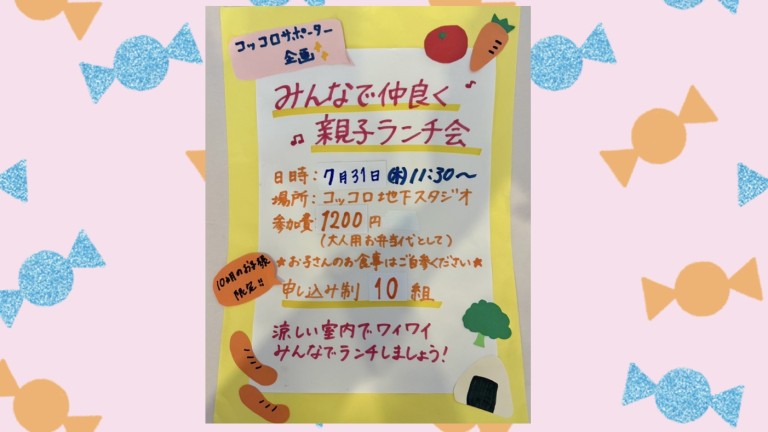 コッコロサポーター
企画
みんなで仲良く
親子ランチ会
日時：7月31日(木)11:30～
場所：コッコロ地下スタジオ
参加費 1200円
(大人用お弁当代として)
★お子さんのお食事はご自参ください★
申し込み制 10組
10ヵ月のお子様
限定!!
涼しい室内でワイワイ
みんなでランチしましょう！